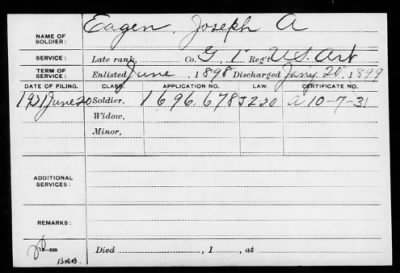 NAME OF SOLDIER: Eagen, Joseph A
SERVICE: Late rank, Co. G, 1" Reg't U.S. Art
TERM OF SERVICE: Enlisted June, 1898 Discharged Jany. 20, 1899
DATE OF FILING. CLASS. APPLICATION NO. LAW. CERTIFICATE NO.
1921 June 20 Soldier, 1696678 3220 a 10-7-31
Widow,
Minor,
ADDITIONAL SERVICES:
REMARKS:
Died , 1 , at